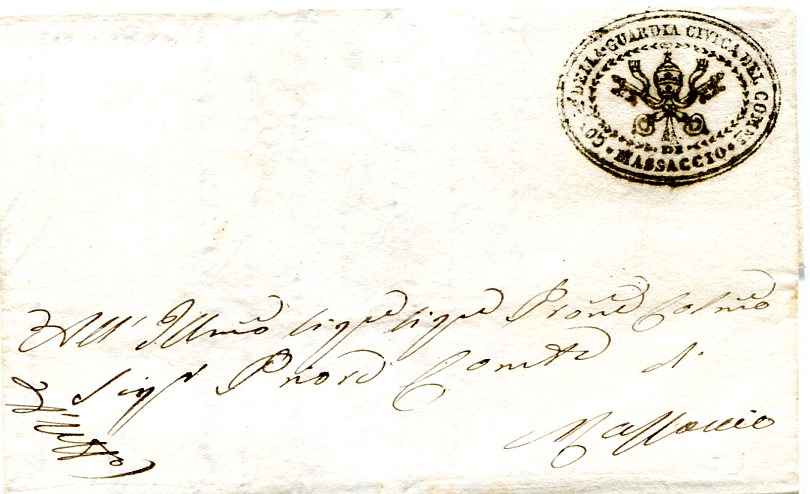 COM.E DELLA GUARDIA CIVICA DEL COM.NE
DI
• MASSACCIO •
All' Illmo Sigre Sigre Prone Colmo
Sigr Priore Comle di
Massaccio
D'Uffo